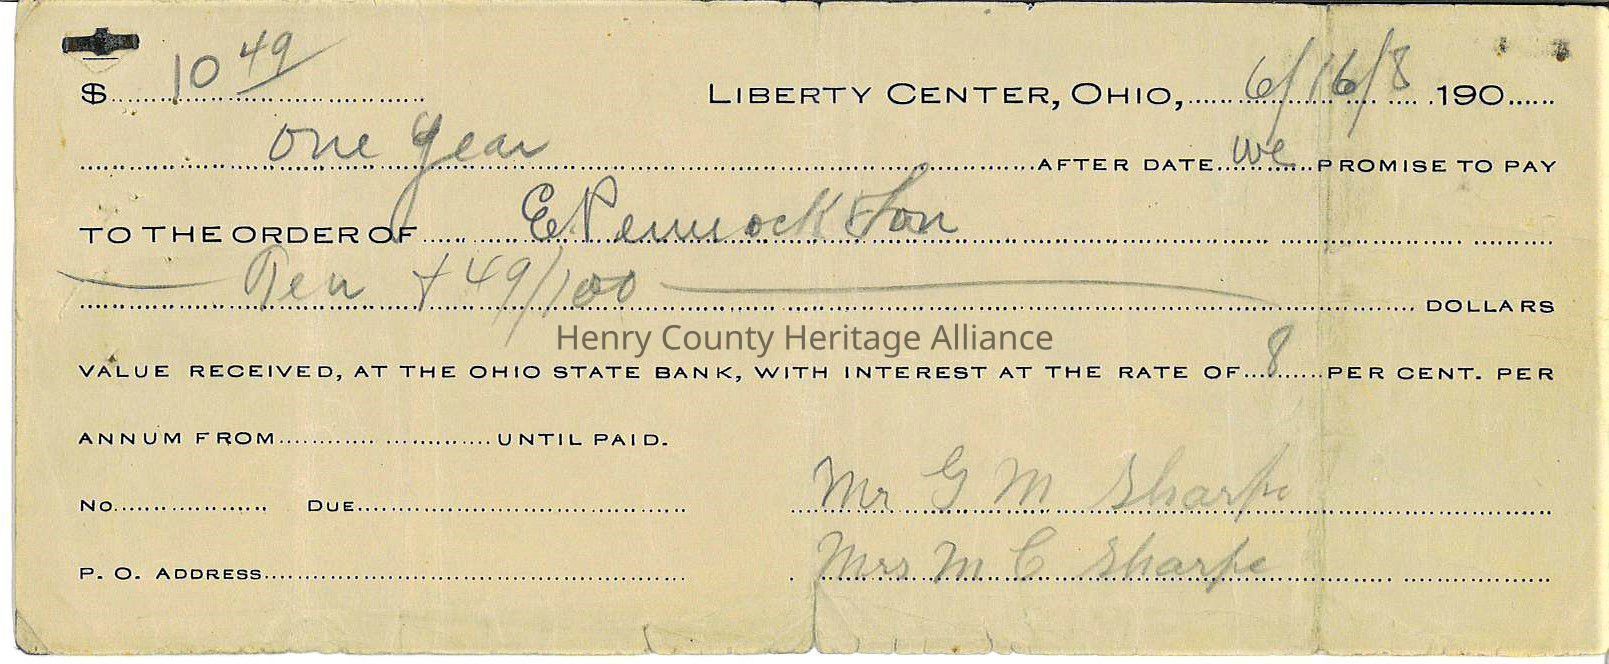 $ 10 49 LIBERTY CENTER, OHIO, 6/16/8 190
One Year AFTER DATE we PROMISE TO PAY
TO THE ORDER OF E Pennock & Son
Ten + 49/100 DOLLARS
Henry County Heritage Alliance
VALUE RECEIVED, AT THE OHIO STATE BANK, WITH INTEREST AT THE RATE OF 8 PER CENT. PER
ANNUM FROM UNTIL PAID.
Mr G M Sharpe
NO. DUE
Mrs M C Sharpe
P. O. ADDRESS